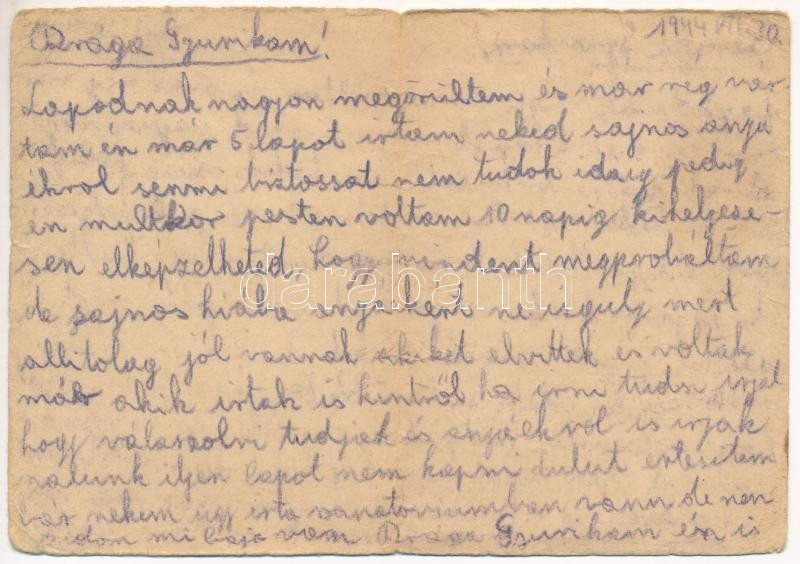 1944 VII. 30.
Drága Gyurikam!
Lapodnak nagyon megörültem és már reg vár-
tam én már 5 lapot irtam neked sajnos anyu
ékrol semmi biztossat nem tudok idáig pedig
én multkor pesten voltam 10 napig kihelyese-
sen elképzelheted, hogy mindent megprobáltam
de sajnos hiába anyukem ne izgulj mert
allitolag jól vannak akiket elvittek es voltak
már akik irtak is kintről ha irni tudsz irjál
hogy válaszolni tudjak és anyuékrol is irjak
nalunk ilyen lapot nem kapni dulut ertesitem
bár nekem ugy irta sanatoriumban vann de nem
tudom mi baja van Drága Gyurikam én is
darabanth